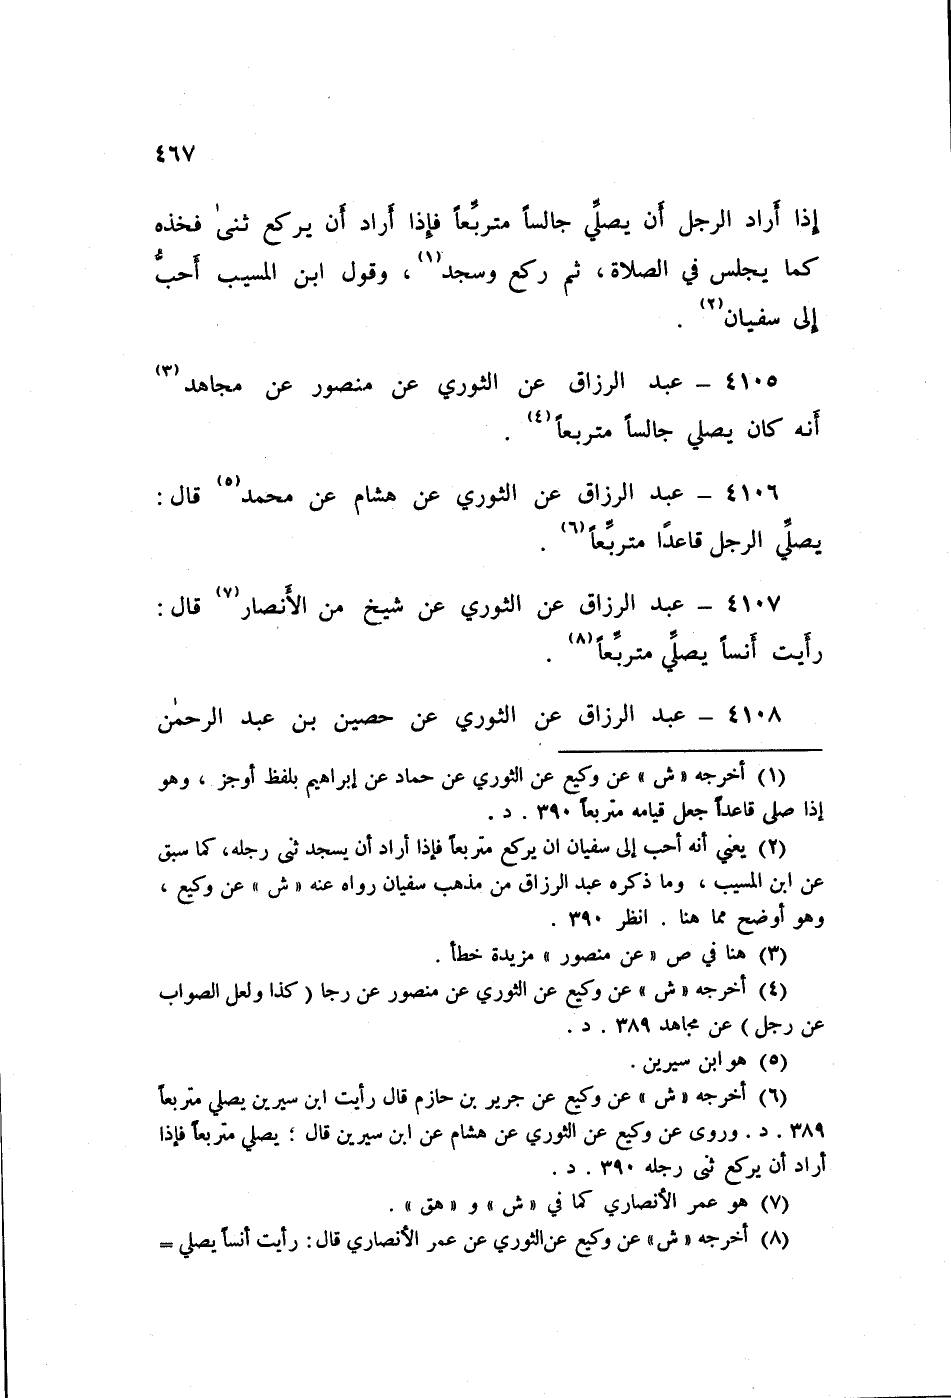 ٤٦٧
إذا أَراد الرجل أَن يصلِّي جالساً متربِّعاً فإذا أَراد أَن يركع ثنىٰ فخذه
كما يجلس في الصلاة ، ثم ركع وسجد(١) ، وقول ابن المسيب أَحبُّ
إلى سفيان(٢) .
٤١٠٥ – عبد الرزاق عن الثوري عن منصور عن مجاهد(٣)
أَنه كان يصلي جالساً متربعاً(٤) .
٤١٠٦ – عبد الرزاق عن الثوري عن هشام عن محمد(٥) قال :
يصلِّي الرجل قاعدًا متربِّعاً(٦) .
٤١٠٧ – عبد الرزاق عن الثوري عن شيخ من الأَنصار(٧) قال :
رأَيت أَنساً يصلِّي متربِّعاً(٨) .
٤١٠٨ – عبد الرزاق عن الثوري عن حصين بن عبد الرحمٰن
(١) أخرجه « ش » عن وكيع عن الثوري عن حماد عن إبراهيم بلفظ أوجز ، وهو
إذا صلى قاعداً جعل قيامه متربعاً ٣٩٠ . د .
(٢) يعني أنه أحب إلى سفيان ان يركع متربعاً فإذا أراد أن يسجد ثنى رجله، كما سبق
عن ابن المسيب ، وما ذكره عبد الرزاق من مذهب سفيان رواه عنه « ش » عن وكيع ،
وهو أوضح مما هنا . انظر ٣٩٠ .
(٣) هنا في ص « عن منصور » مزيدة خطأ .
(٤) أخرجه « ش » عن وكيع عن الثوري عن منصور عن رجا ( كذا ولعل الصواب
عن رجل ) عن مجاهد ٣٨٩ . د .
(٥) هو ابن سيرين .
(٦) أخرجه « ش » عن وكيع عن جرير بن حازم قال رأيت ابن سيرين يصلي متربعاً
٣٨٩ . د . وروى عن وكيع عن الثوري عن هشام عن ابن سيرين قال : يصلي متربعاً فإذا
أراد أن يركع ثنى رجله ٣٩٠ . د .
(٧) هو عمر الأنصاري كما في « ش » و « هق » .
(٨) أخرجه « ش» عن وكيع عن الثوري عن عمر الأنصاري قال : رأيت أنساً يصلي =